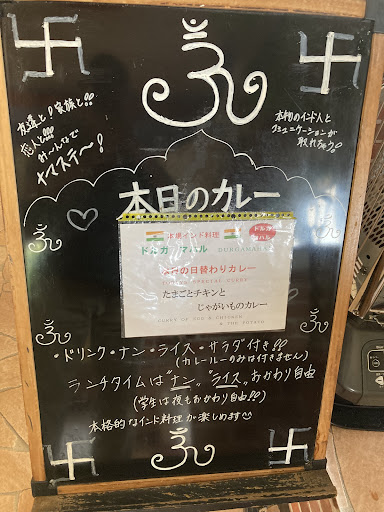 ॐ
友達と!家族と!!
恋人と!!!
みーんなで
ナマステ〜!
本物のインド人と
コミュニケーションが
取れちゃう!
本日のカレー
本場インド料理
ドルガ マハル DURGAMAHAL
ドルガ
マハル
本日の日替わりカレー
TODAY'S SPECIAL CURRY
たまごとチキンと
じゃがいものカレー
CURRY OF EGG & CHICKEN
& THE POTATO
ॐ
ॐ
・ドリンク・ナン・ライス・サラダ付き!!
(カレールーのみは付きません)
ランチタイムは"ナン"。"ライス"おかわり自由
(学生は夜もおかわり自由!!)
本格的なインド料理が楽しめます
ॐ